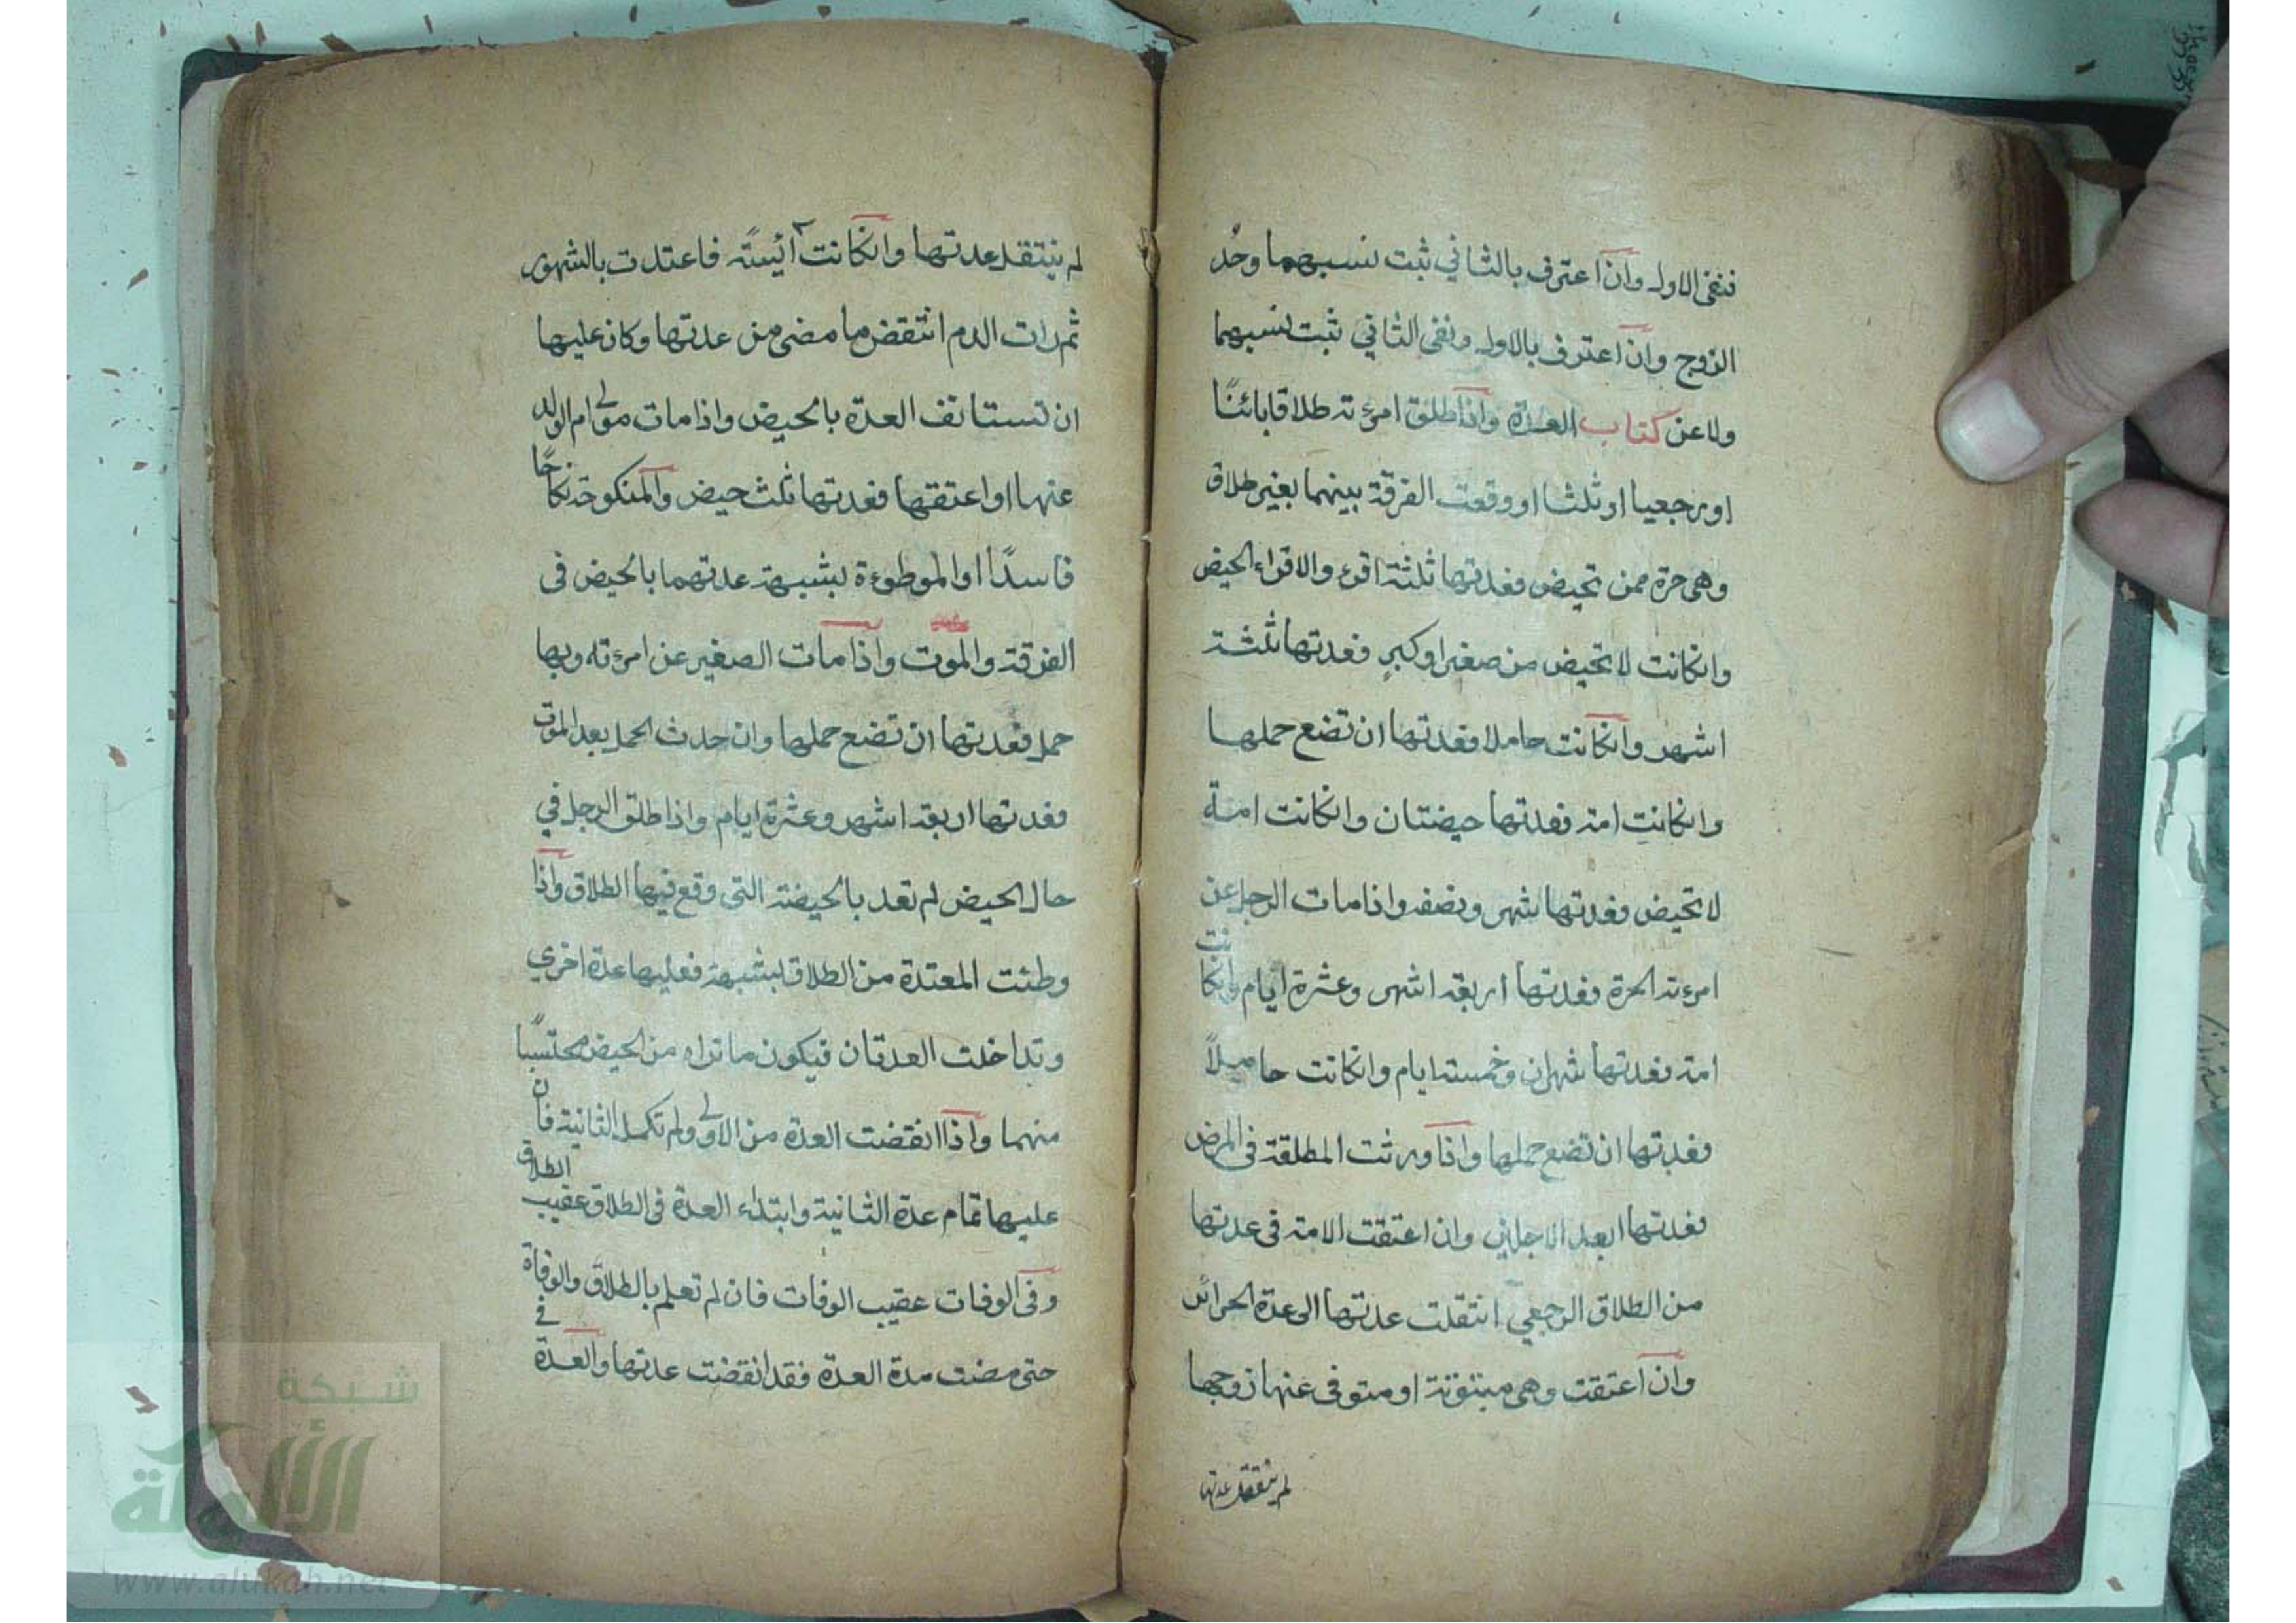 فنفى الاول وان اعترف بالثاني ثبت نسبهما وحُد
الزوج وان اعترف بالاول ونفى الثاني ثبت نسبهما
ولاعن كتاب العدة واذا طلق امرءته طلاقا بائنًا
او رجعيا او ثلثا او وقعت الفرقة بينهما بغير طلاق
وهى حرة ممن تحيض فعدتها ثلثة اقرء والاقراء الحيض
وانكانت لا تحيض من صغر او كبرٍ فعدتها ثلثة
اشهر وانكانت حاملا فعدتها ان تضع حملها
وانكانت امة فعدتها حيضتان وانكانت امة
لا تحيض فعدتها شهر ونصف واذا مات الرجل عن
امرءته الحرة فعدتها اربعة اشهر وعشرة ايام وانكانت
امة فعدتها شهران وخمسة ايام وانكانت حاميلاً
فعدتها ان تضع حملها واذا ورثت المطلقة فى المرض
فعدتها ابعد الاجلين وان اعتقت الامة فى عدتها
من الطلاق الرجعي انتقلت عدتها الى عدة الحرائر
وان اعتقت وهى مبتوتة او متوفى عنها زوجها
لم ينتقل عدتها
لم ينتقل عدتها وانكانت آئيسًة فاعتدت بالشهور
ثم رات الدم انتقض ما مضى من عدتها وكان عليها
ان تستانف العدة بالحيض واذا مات مولى ام الولد
عنها او اعتقها فعدتها ثلث حيض والمنكوحة نكاحًا
فاسدًا او الموطوءة بشبهة عدتهما بالحيض فى
الفرقة والموت واذا مات الصغير عن امرءته وبها
حمل فعدتها ان تضع حملها وان حدث الحمل بعد الموت
فعدتها اربعة اشهر وعشرة ايام واذا طلق الرجل في
حال الحيض لم تعد بالحيضة التى وقع فيها الطلاق واذا
وطئت المعتدة من الطلاق بشبهة فعليها عدة اخري
وتداخلت العدتان فيكون ما تراه من الحيض محتسبًا
منهما واذا انقضت العدة من الاولى ولم تكمل الثانية فان
عليها تمام عدة الثانية وابتداء العدة فى الطلاق عقيب الطلاق
وفى الوفات عقيب الوفات فان لم تعلم بالطلاق والوفاة
حتى مضت مدة العدة فقد انقضت عدتها والعدة في
شبكة
الألوكة
www.alukah.net